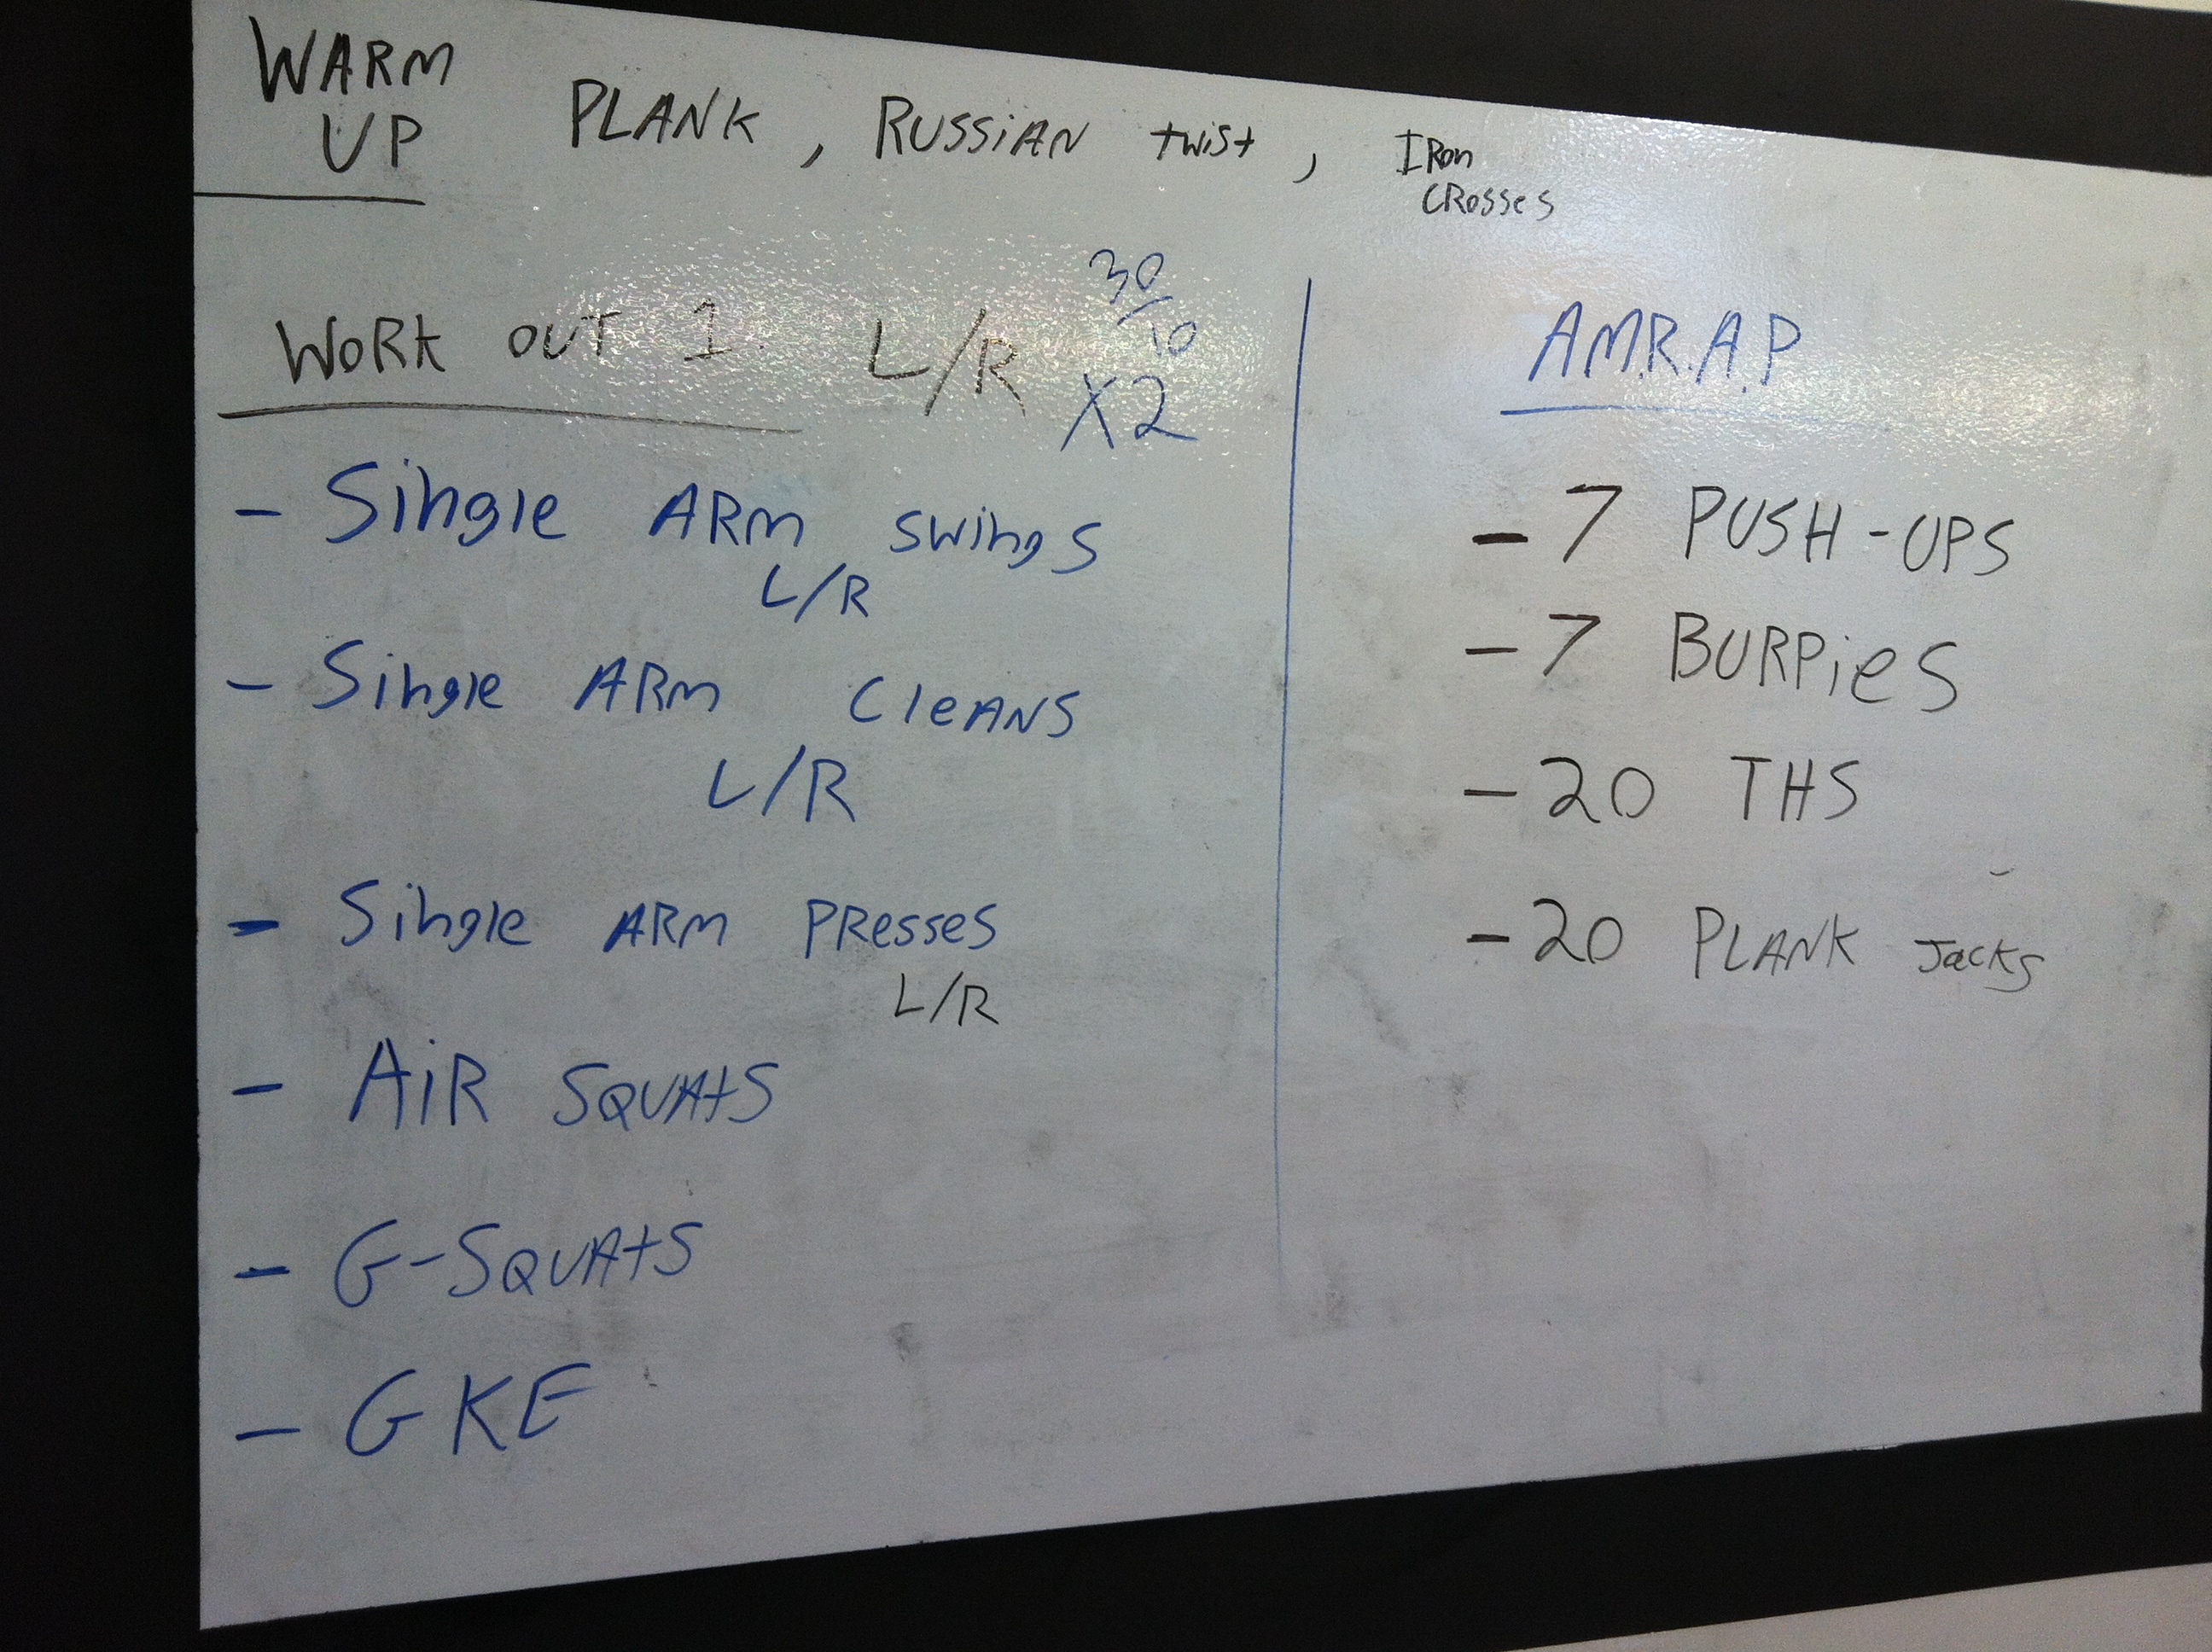 WARM
UP
PLANK, RUSSiAN twist, IRon
CRosses
WORK OUT 1. L/R
30/10
X2
- Single ARM swings
L/R
- Single ARM CleANS
L/R
- Single ARM PResses
L/R
- AiR SQUAtS
- G-SQUAtS
- GKE
A.M.R.A.P
- 7 PUSH-UPS
- 7 BURPieS
- 20 THS
- 20 PLANK Jacks